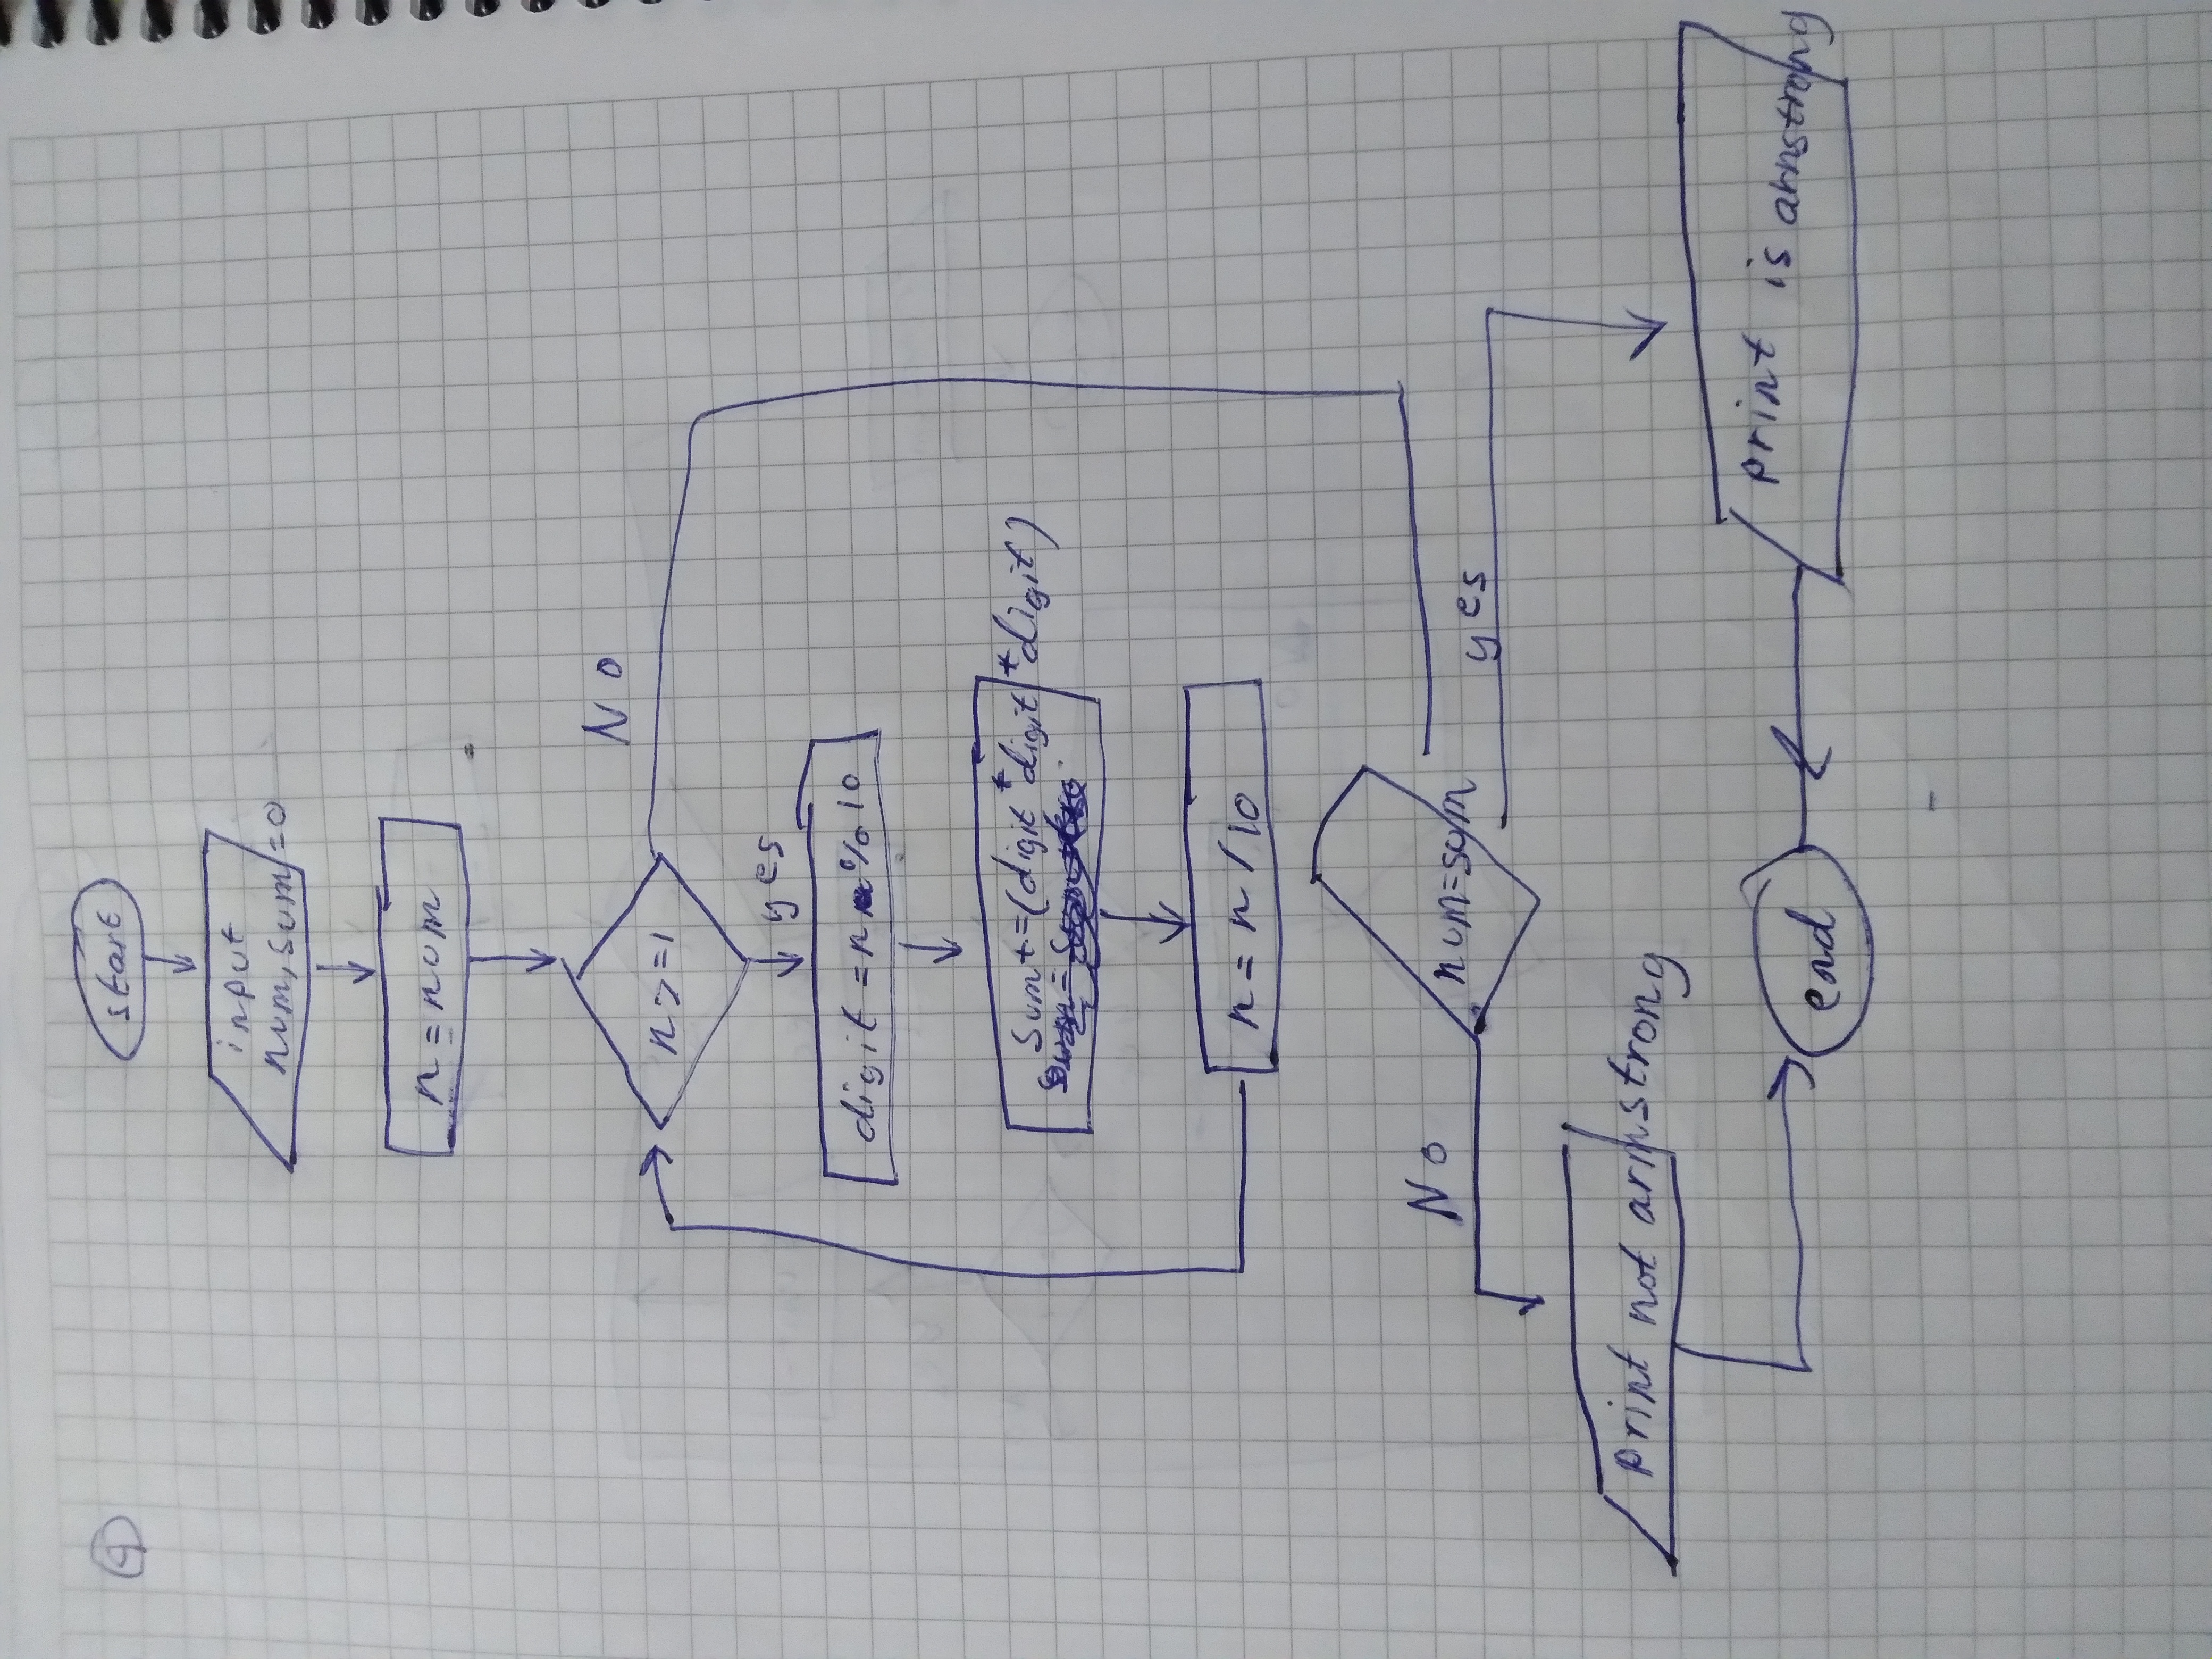 9
start
input
num, sum=0
n=num
n>=1
No
yes
digit =n % 10
sum+=(digit*digit*digit)
n=n/10
num=sum
No
yes
print not armstrong
print is arnstrong
end